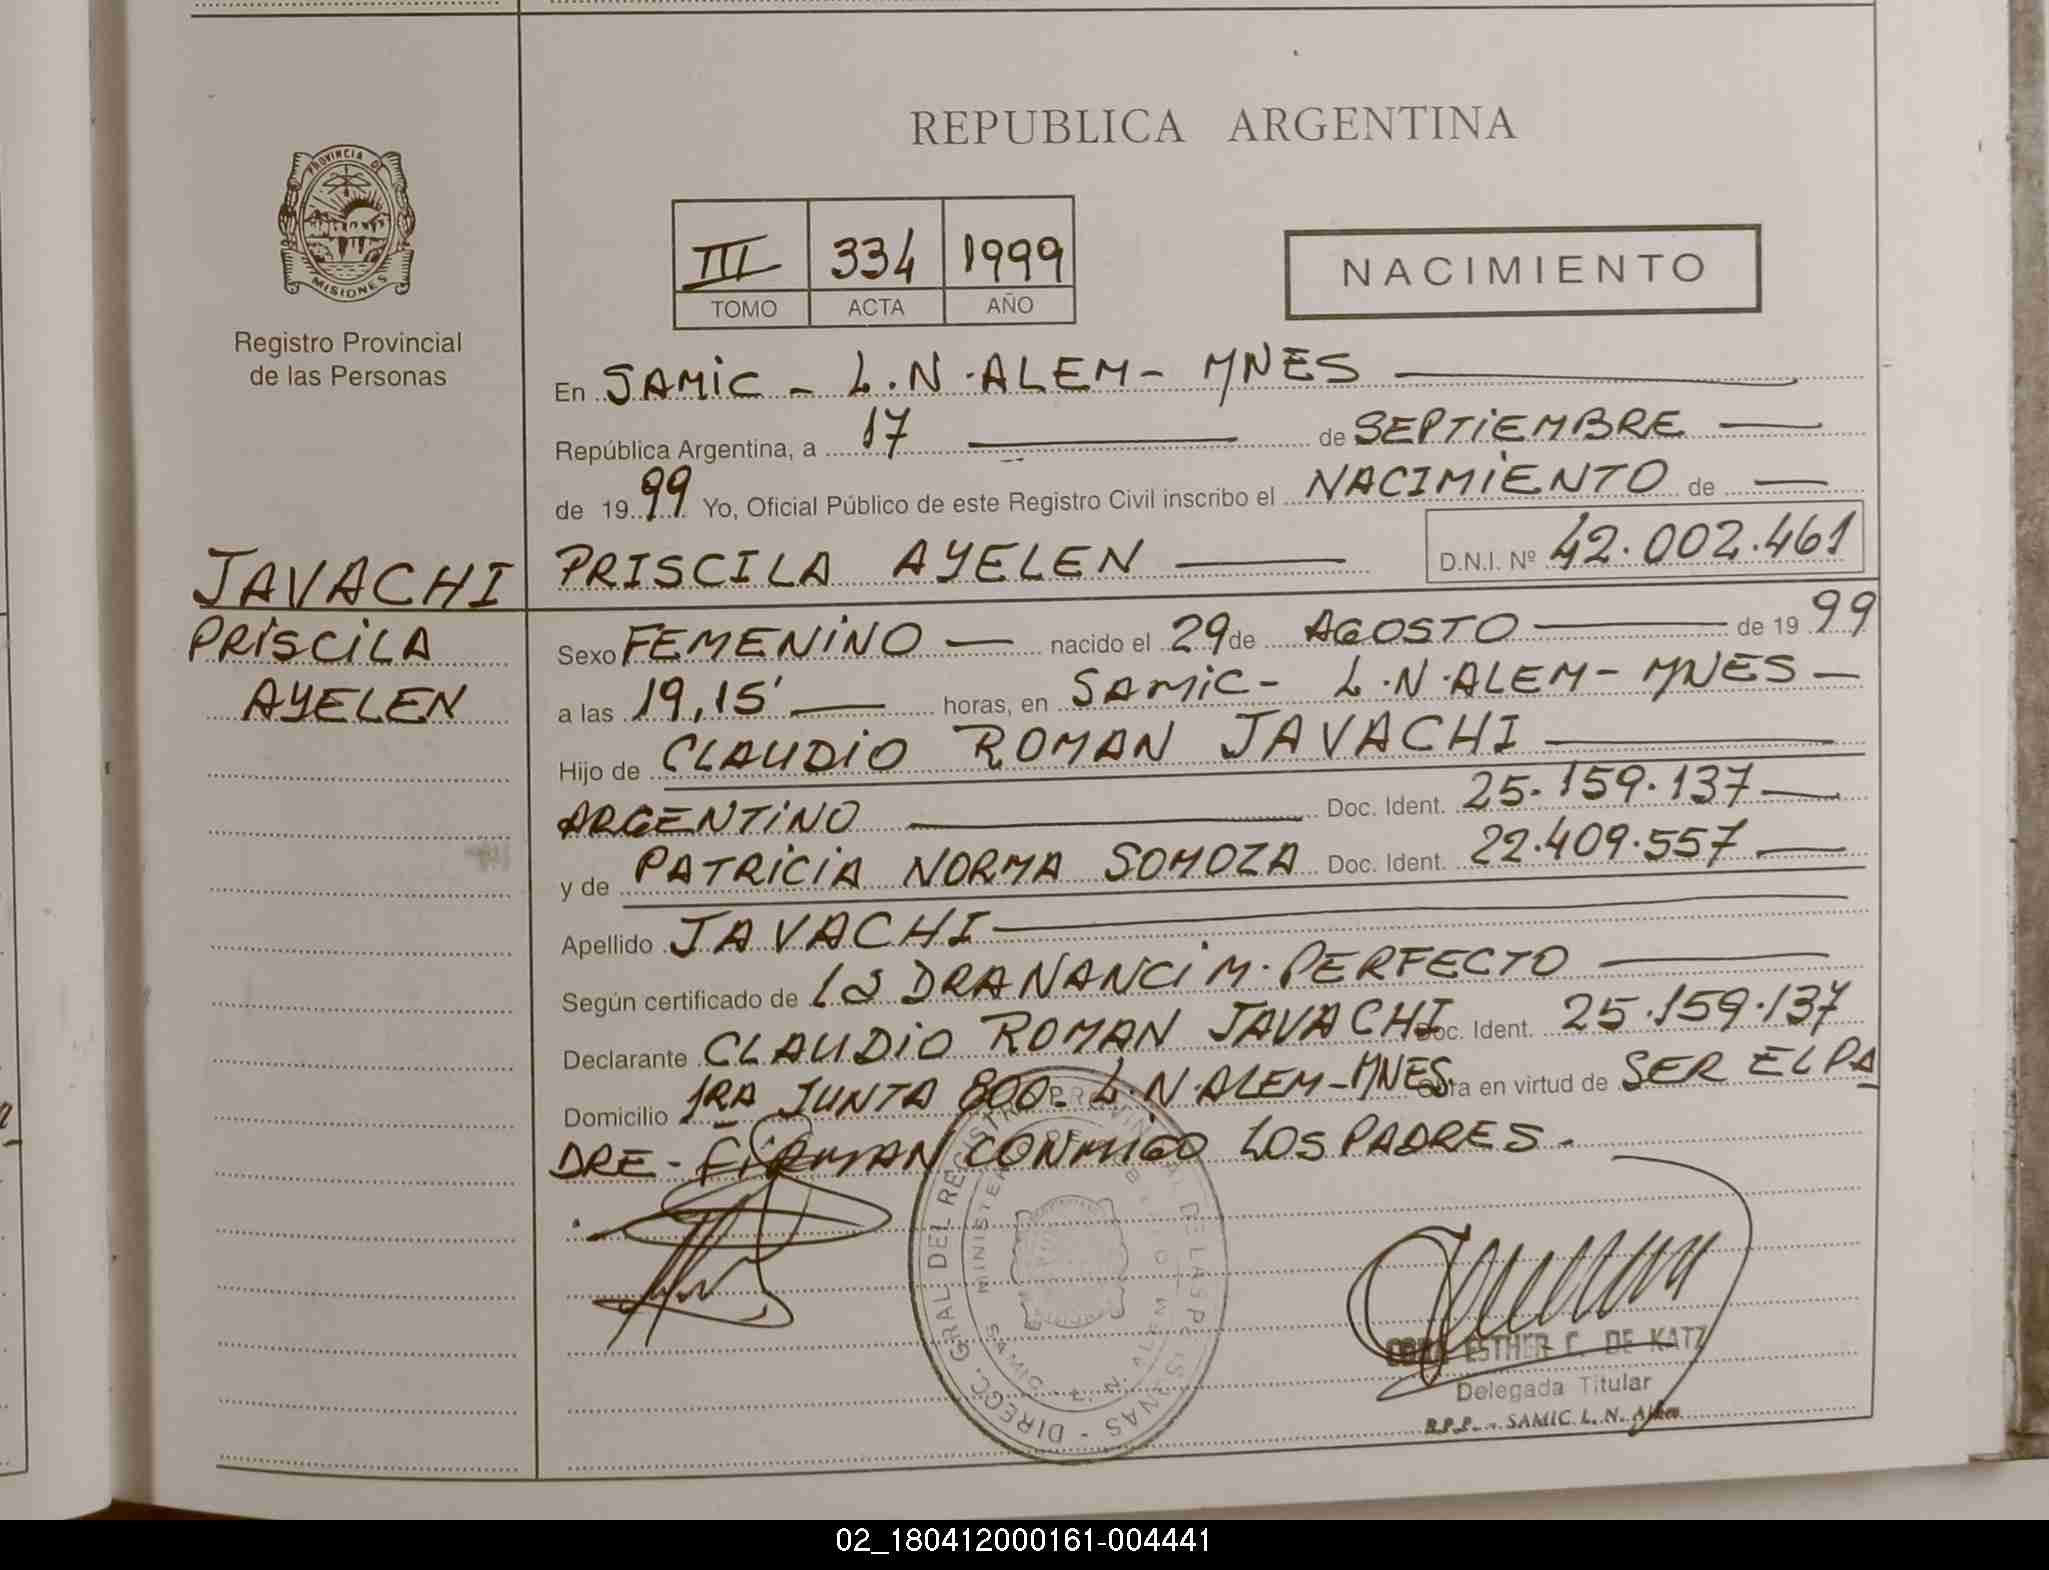 REPUBLICA ARGENTINA
PROVINCIA DE
MISIONES
Registro Provincial
de las Personas
III 334 1999
TOMO ACTA AÑO
NACIMIENTO
En SAMIC - L.N.ALEM - MNES
República Argentina, a 17 de SEPTIEMBRE
de 1999 Yo, Oficial Público de este Registro Civil inscribo el NACIMIENTO de
JAVACHI PRISCILA AYELEN D.N.I. Nº 42.002.461
PRISCILA
AYELEN
Sexo FEMENINO nacido el 29 de AGOSTO de 1999
a las 19,15' horas, en SAMIC - L.N.ALEM - MNES
Hijo de CLAUDIO ROMAN JAVACHI
ARGENTINO Doc. Ident. 25.159.137
y de PATRICIA NORMA SOMOZA Doc. Ident. 22.409.557
Apellido JAVACHI
Según certificado de LA DRA NANCI M. PERFECTO
Declarante CLAUDIO ROMAN JAVACHI Doc. Ident. 25.159.137
Domicilio 1RA JUNTA 800- L.N.ALEM-MNES en virtud de SER EL PA
DRE - FIRMAN CONMIGO LOS PADRES.
DIRECC. GRAL. DEL REGISTRO PROVINCIAL DE LAS PERSONAS
ESTHER C. DE KATZ
Delegada Titular
SAMIC L. N. Alem
02_180412000161-004441